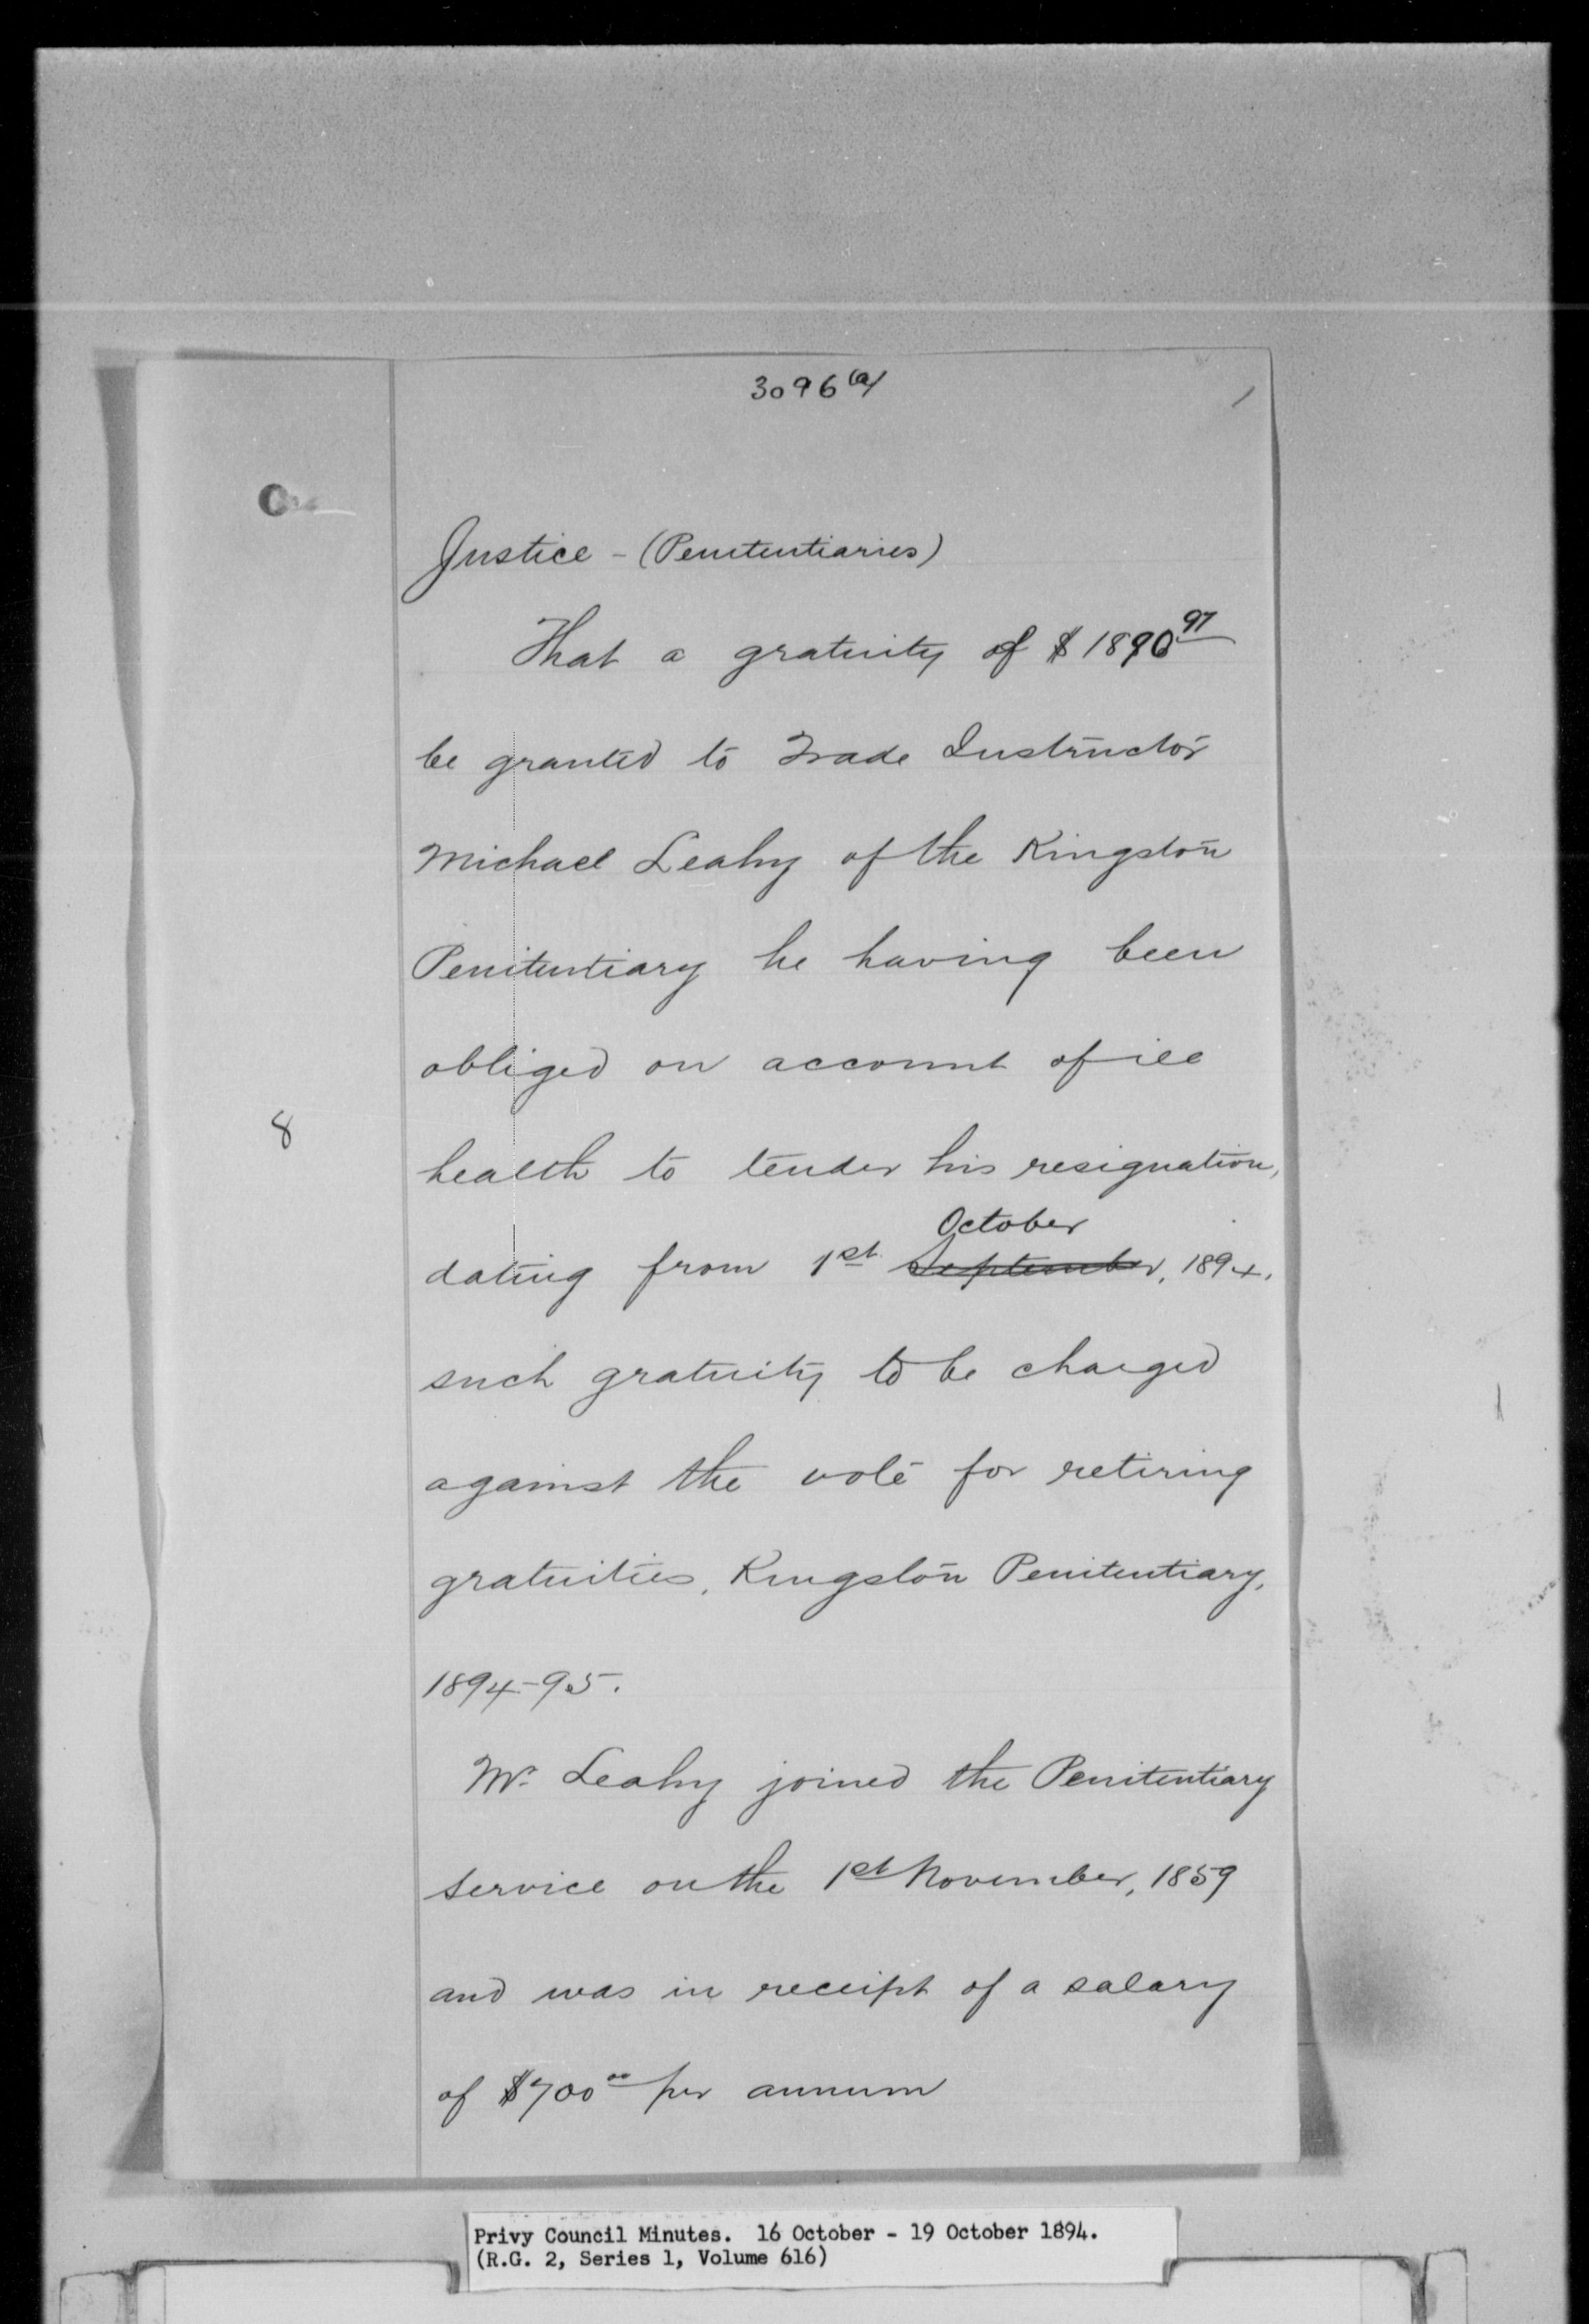 3096 (a)
Justice - (Penitentiaries)
That a gratuity of $ 1890 97
be granted to Trade Instructor
Michael Leahy of the Kingston
Penitentiary he having been
obliged on account of ill
health to tender his resignation,
October
dating from 1st September, 1894.
such gratuity to be charged
8
against the vote for retiring
gratuities, Kingston Penitentiary,
1894-95.
Mr. Leahy joined the Penitentiary
service on the 1st November, 1859
and was in receipt of a salary
of $700 00 per annum
Privy Council Minutes. 16 October - 19 October 1894.
(R.G. 2, Series 1, Volume 616)